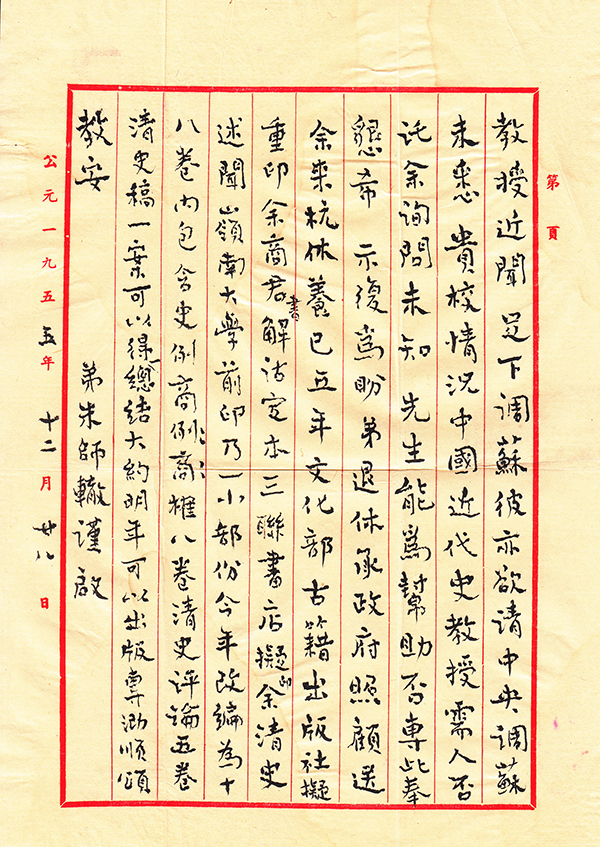 第 頁
教授近聞 足下調蘇彼亦欲請中央調蘇
未悉 貴校情況中國近代史教授需人否
託余詢問未知 先生能爲幫助否專此奉
懇希 示復爲盼 弟退休承政府照顧送
余來杭休養已五年文化部古籍出版社擬
重印余商君書解詁定本三聯書店擬印余清史
述聞嶺南大學前印乃一小部份今年改編為十
八卷內包含史例商例商榷八卷清史評論五卷
清史稿一案可以得總結大約明年可以出版專泐順頌
教安
弟朱師轍謹啟
公元一九五五年十二月廿八日